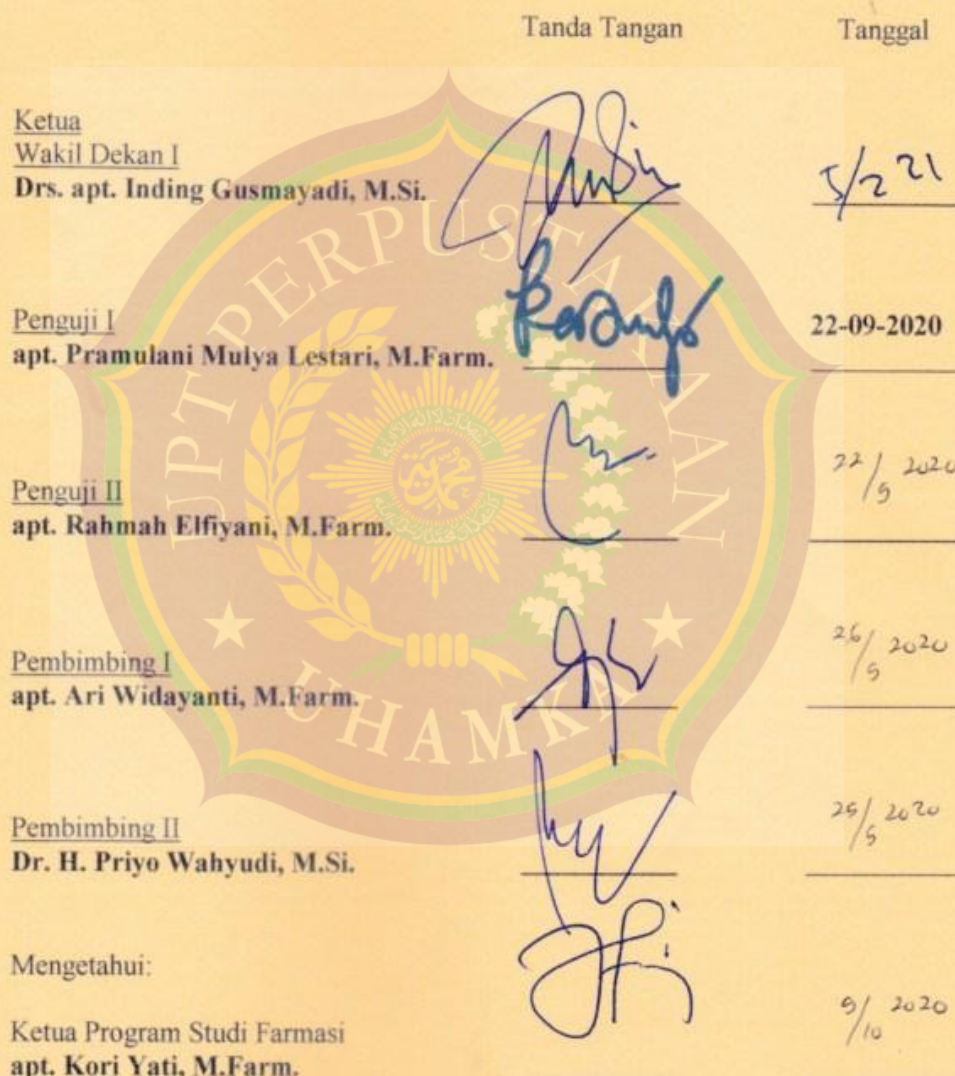 Tanda Tangan Tanggal
Ketua
Wakil Dekan I
Drs. apt. Inding Gusmayadi, M.Si. 5/2 21
Penguji I
apt. Pramulani Mulya Lestari, M.Farm. 22-09-2020
Penguji II
apt. Rahmah Elfiyani, M.Farm. 22/9 2020
Pembimbing I
apt. Ari Widayanti, M.Farm. 2020
Pembimbing II
Dr. H. Priyo Wahyudi, M.Si. 2020
Mengetahui:
Ketua Program Studi Farmasi
apt. Kori Yati, M.Farm. 9/10 2020
UPT PERPUSTAKAAN
UHAMKA